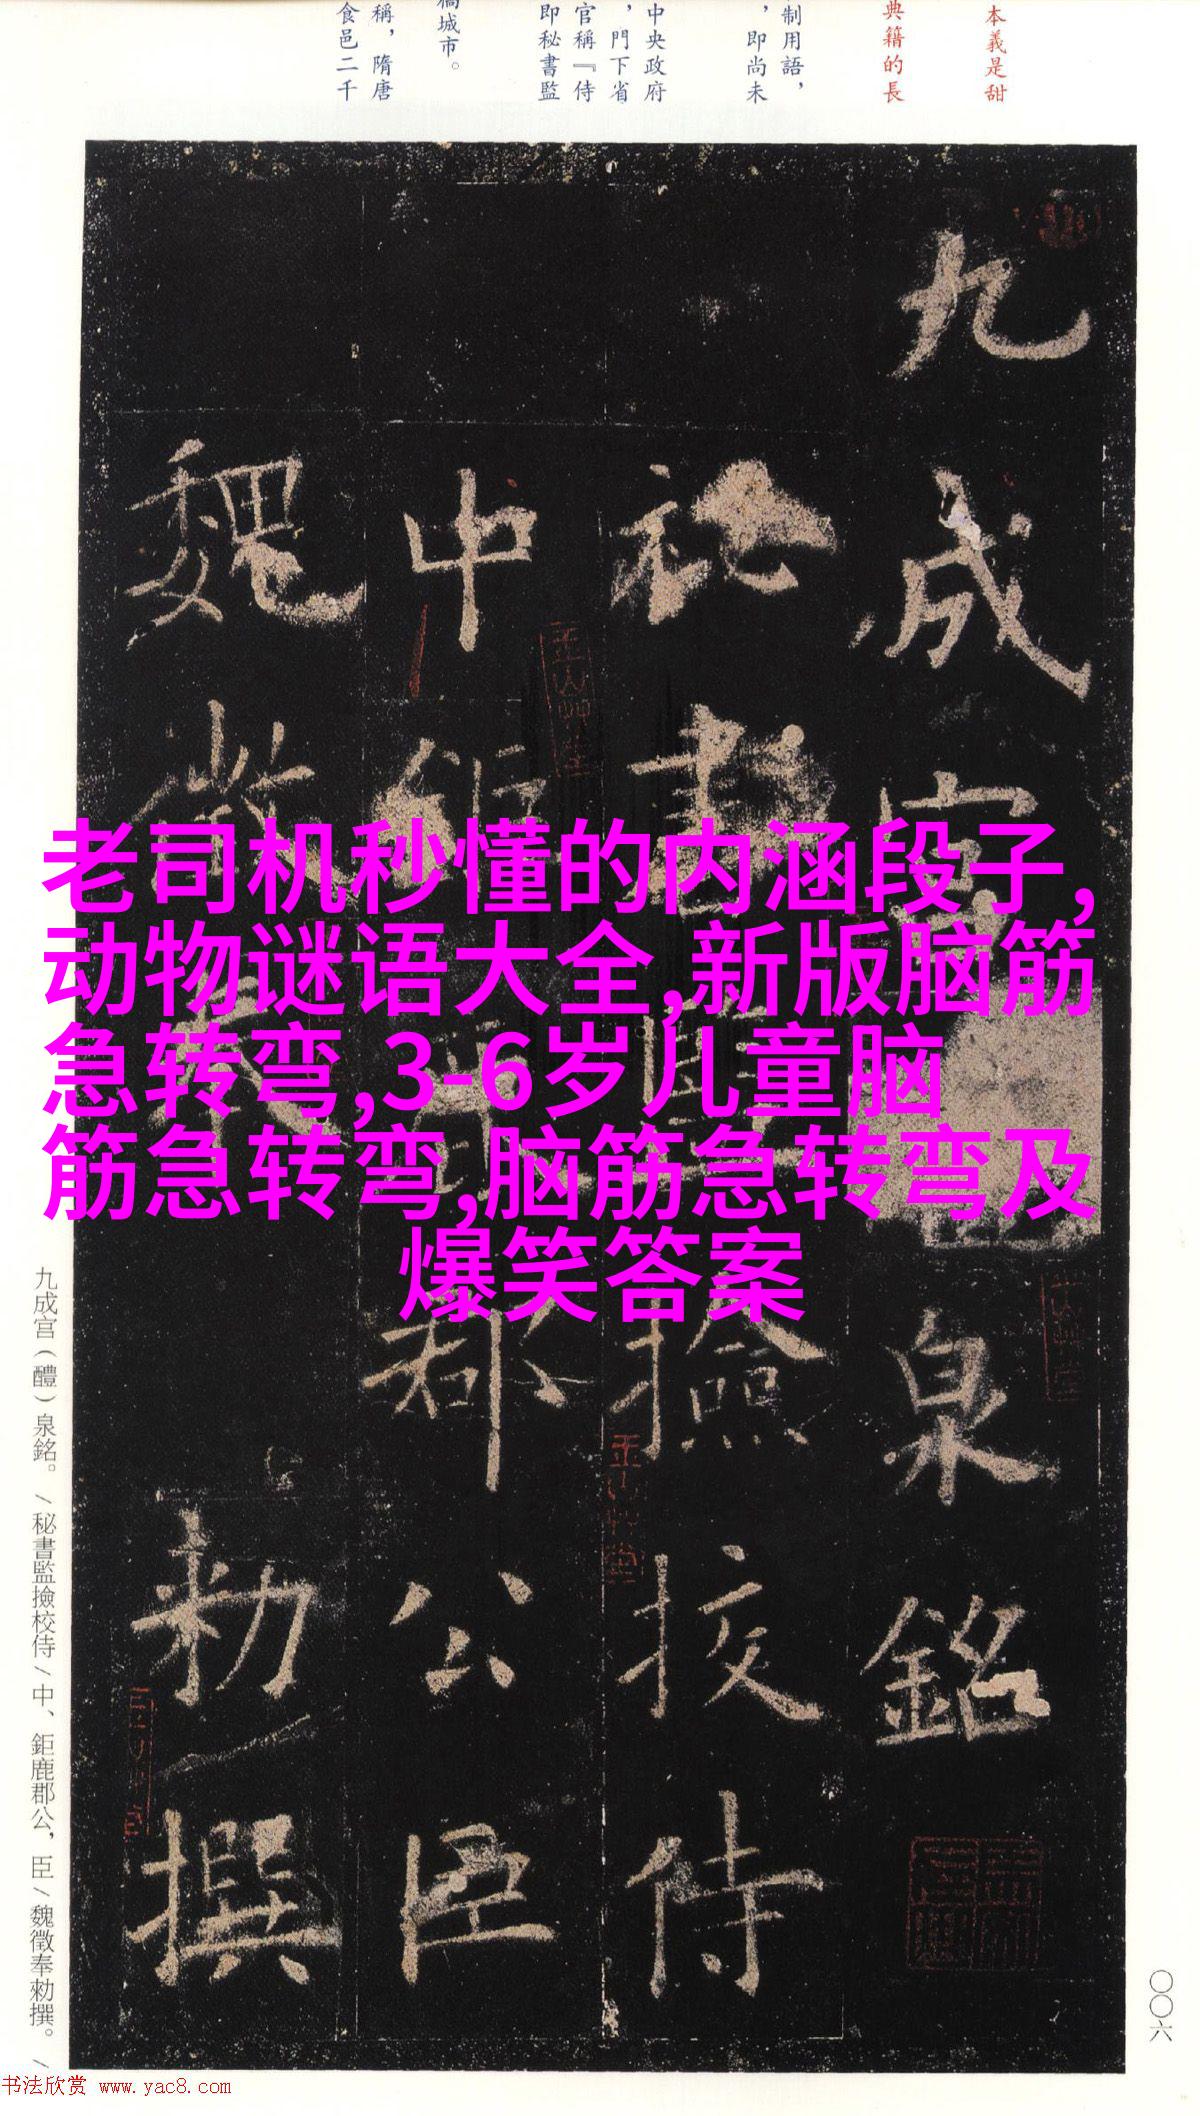 本義是甜
典籍的長
制用語，
，即尚未
中央政府
，門下省
官稱『侍
即秘書監
城市。
稱，隋唐
食邑二千
九成宮
泉銘
祕書監撿挍侍
中
郡公臣
魏徵奉
勑撰
老司机秒懂的内涵段子,
动物谜语大全,新版脑筋
急转弯,3-6岁儿童脑
筋急转弯,脑筋急转弯及
爆笑答案
九成宫（醴）泉銘。/秘書監撿校侍/中、鉅鹿郡公，臣/魏徵奉勑撰。/
〇〇六
书法欣赏 www.yac8.com